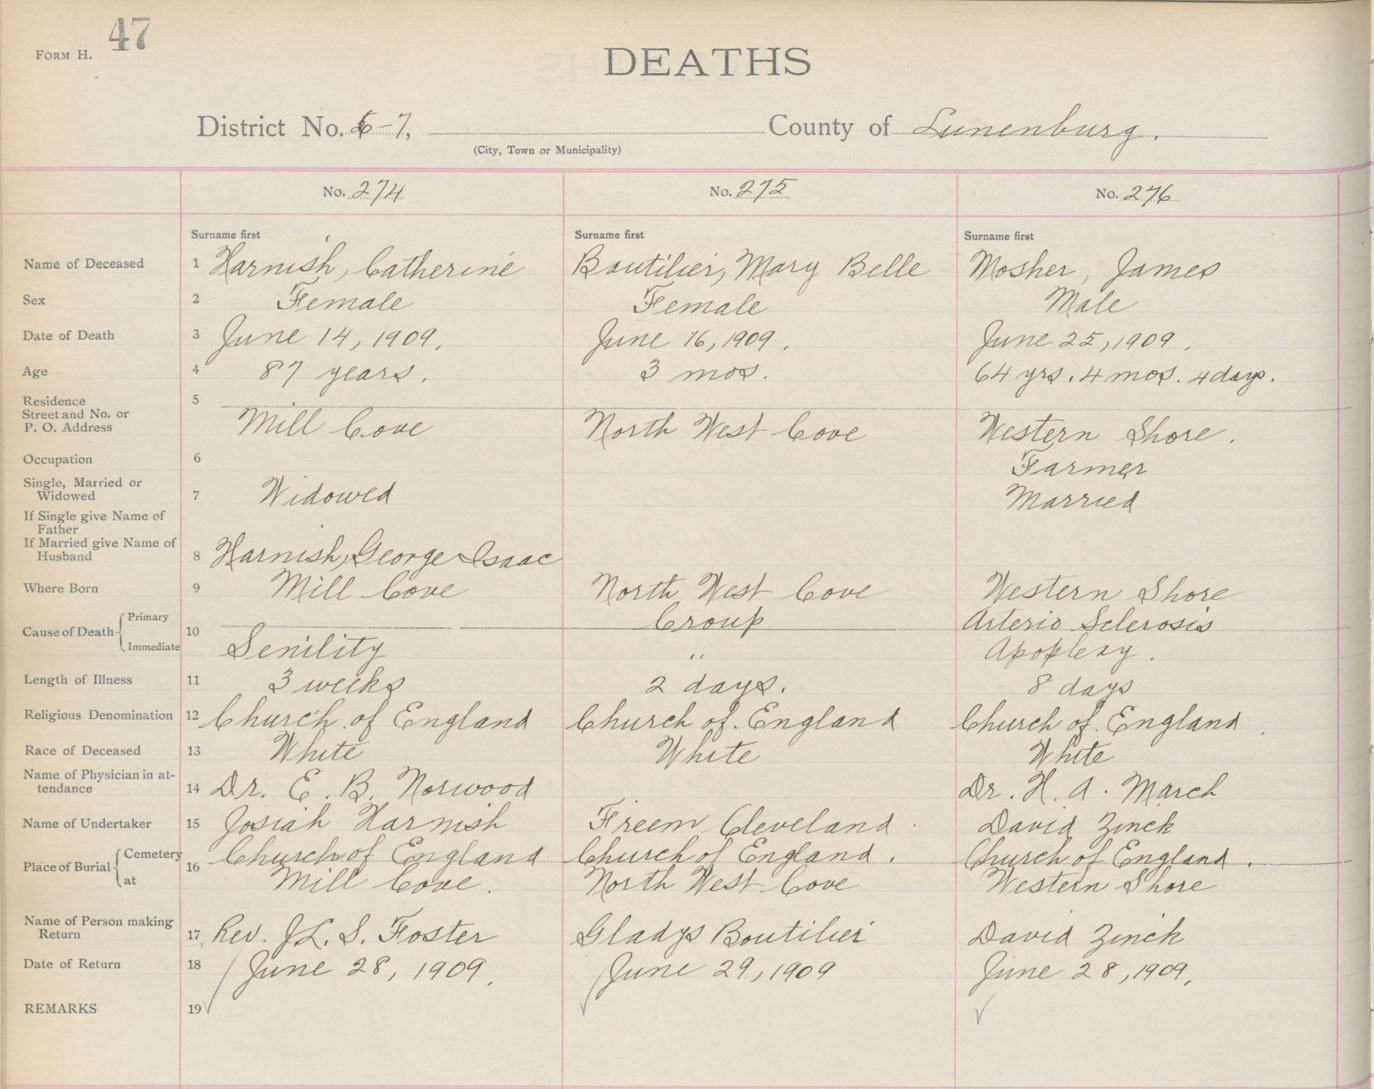 FORM H. 47
DEATHS
District No. 6-7, County of Lunenburg.
(City, Town or Municipality)
No. 274 No. 275 No. 276
Surname first Surname first Surname first
Name of Deceased 1 Harnish, Catherine Boutilier, Mary Belle Mosher, James
Sex 2 Female Female Male
Date of Death 3 June 14, 1909. June 16, 1909. June 25, 1909.
Age 4 87 years. 3 mos. 64 yrs. 4 mos. 4 days.
Residence 5
Street and No. or
P. O. Address Mill Cove North West Cove Western Shore.
Occupation 6 Farmer
Single, Married or
Widowed 7 Widowed Married
If Single give Name of
Father
If Married give Name of
Husband 8 Harnish, George Isaac
Where Born 9 Mill Cove North West Cove Western Shore
Cause of Death Primary 10 Croup Arterio Sclerosis
Immediate Senility " Apoplexy.
Length of Illness 11 3 weeks 2 days. 8 days
Religious Denomination 12 Church of England Church of England Church of England
Race of Deceased 13 White White White
Name of Physician in at-
tendance 14 Dr. E. B. Norwood Dr. H. A. March
Name of Undertaker 15 Josiah Harnish Freem Cleveland David Zinck
Place of Burial Cemetery 16 Church of England Church of England. Church of England.
at Mill Cove. North West Cove Western Shore
Name of Person making
Return 17 Rev. J. L. S. Foster Gladys Boutilier David Zinck
Date of Return 18 June 28, 1909. June 29, 1909 June 28, 1909.
REMARKS 19